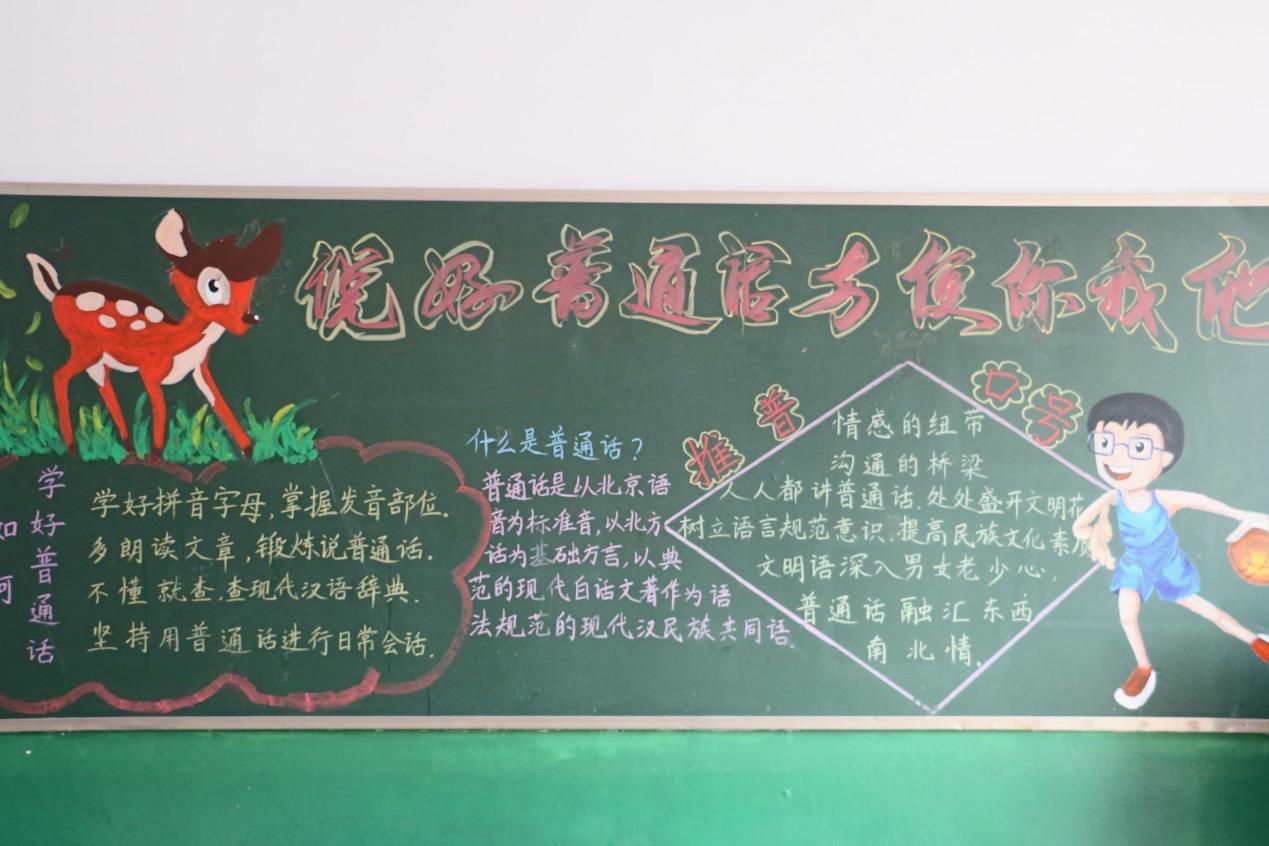 说好普通话方便你我他
如何
学好普通话
学好拼音字母,掌握发音部位.
多朗读文章,锻炼说普通话.
不懂就查,查现代汉语辞典.
坚持用普通话进行日常会话.
什么是普通话?
普通话是以北京语
音为标准音,以北方
话为基础方言,以典
范的现代白话文著作为语
法规范的现代汉民族共同语.
推普口号
情感的纽带
沟通的桥梁
人人都讲普通话.处处盛开文明花
树立语言规范意识.提高民族文化素质
文明语深入男女老少心,
普通话融汇东西
南北情.